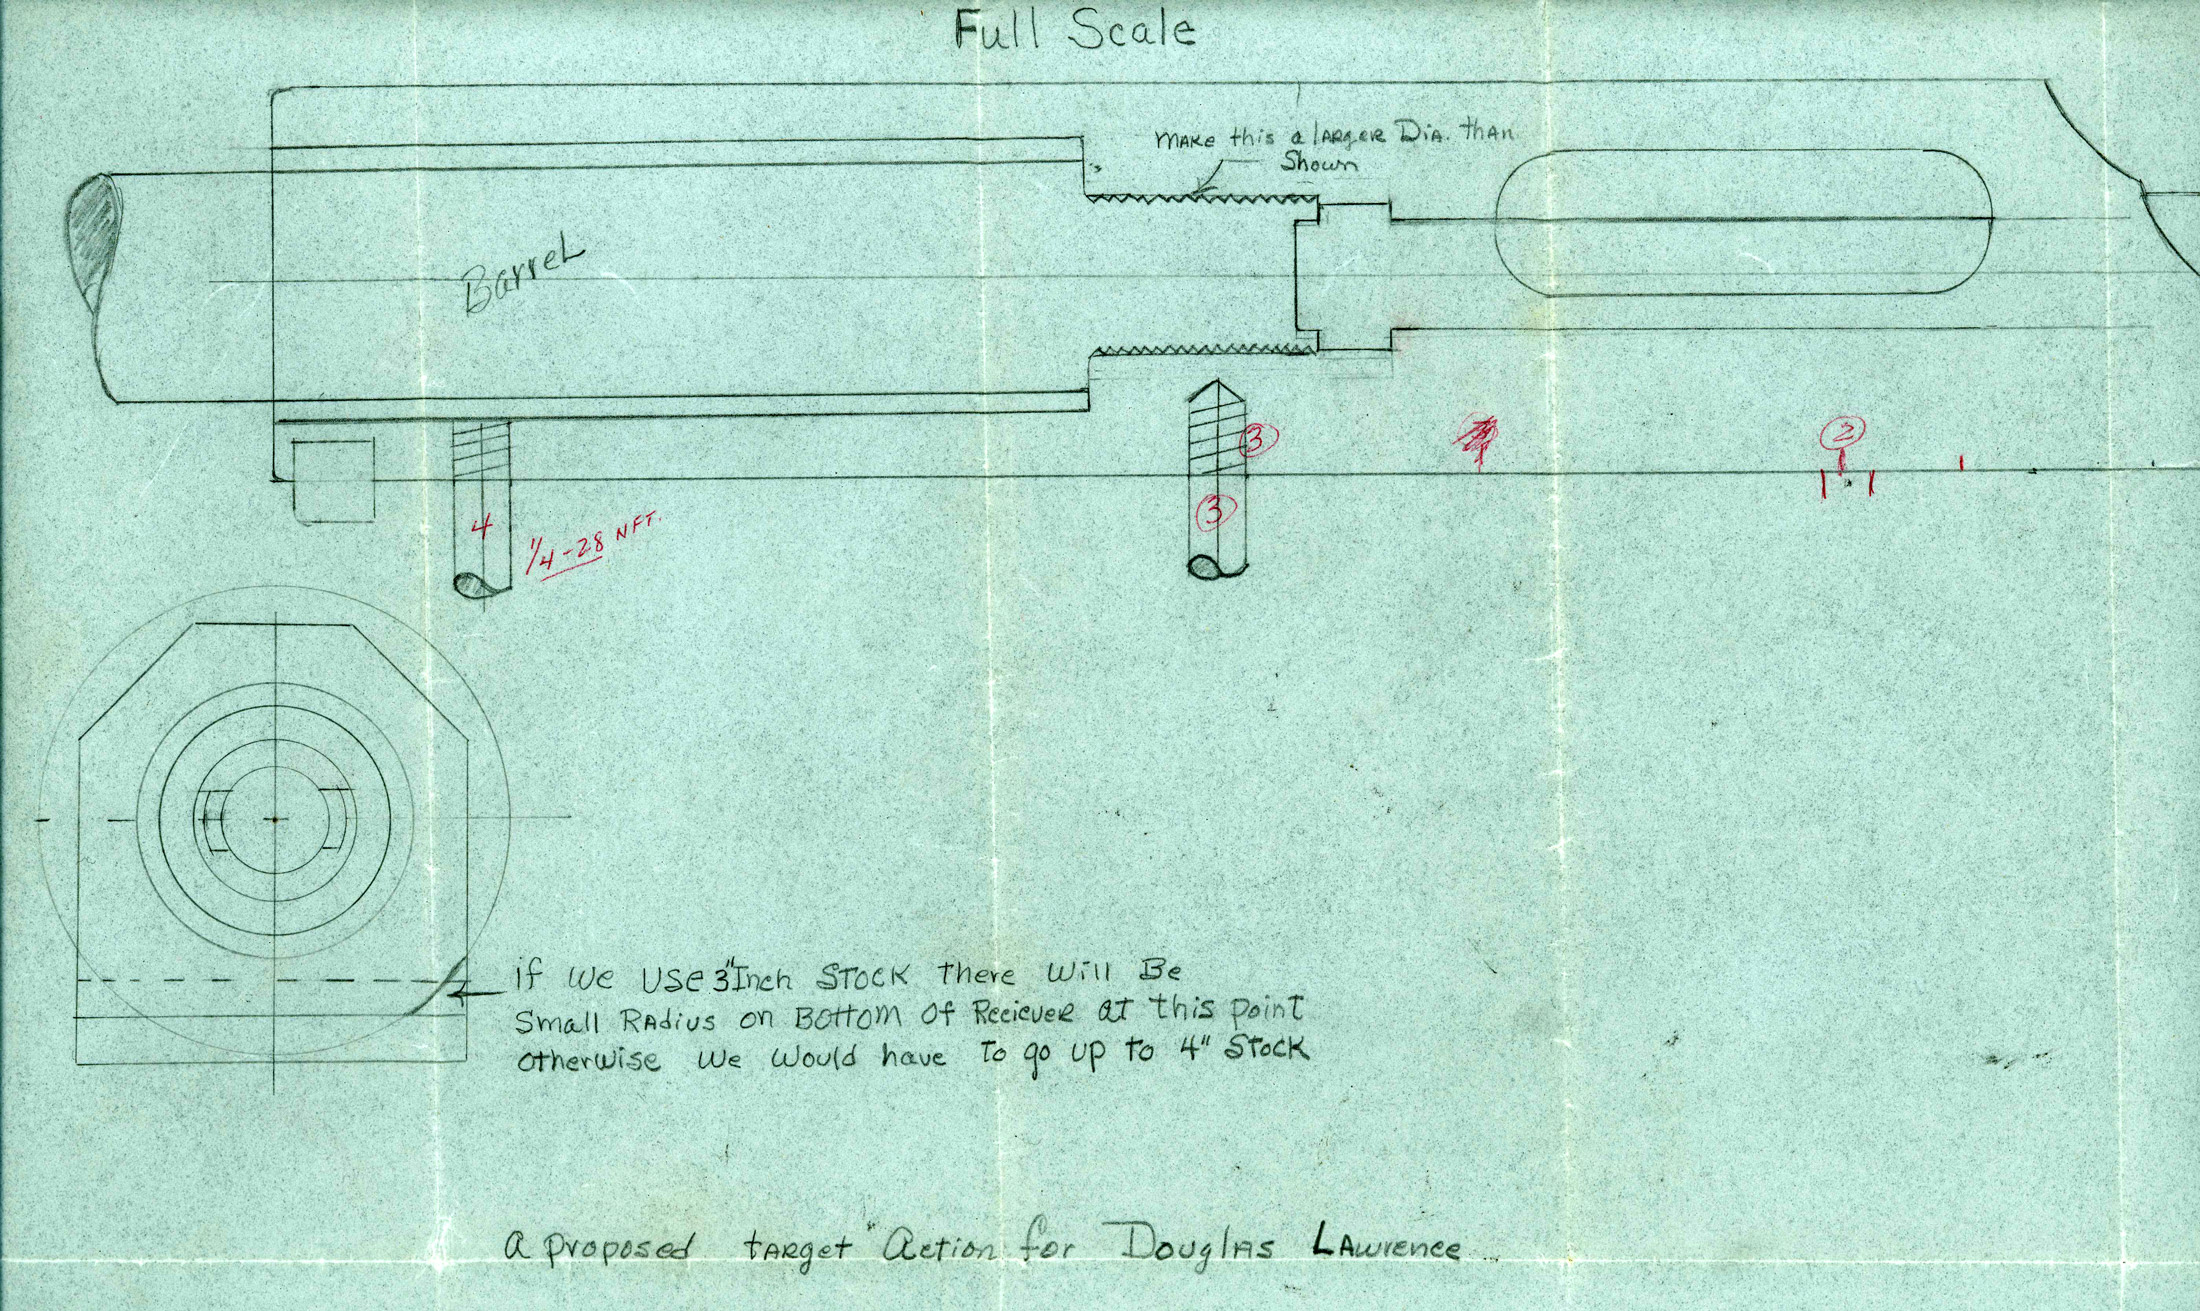 Full Scale
MAKE this a lARgER DiA. thAn
Shown
BarreL
3
2
4
1/4-28 NFT.
3
if we use 3"Inch STOCK there will Be
Small RAdius on Bottom of Reciever at this point
otherwise we would have to go up to 4" STOCK
a proposed tARget "Action for DouglAs LAwrence